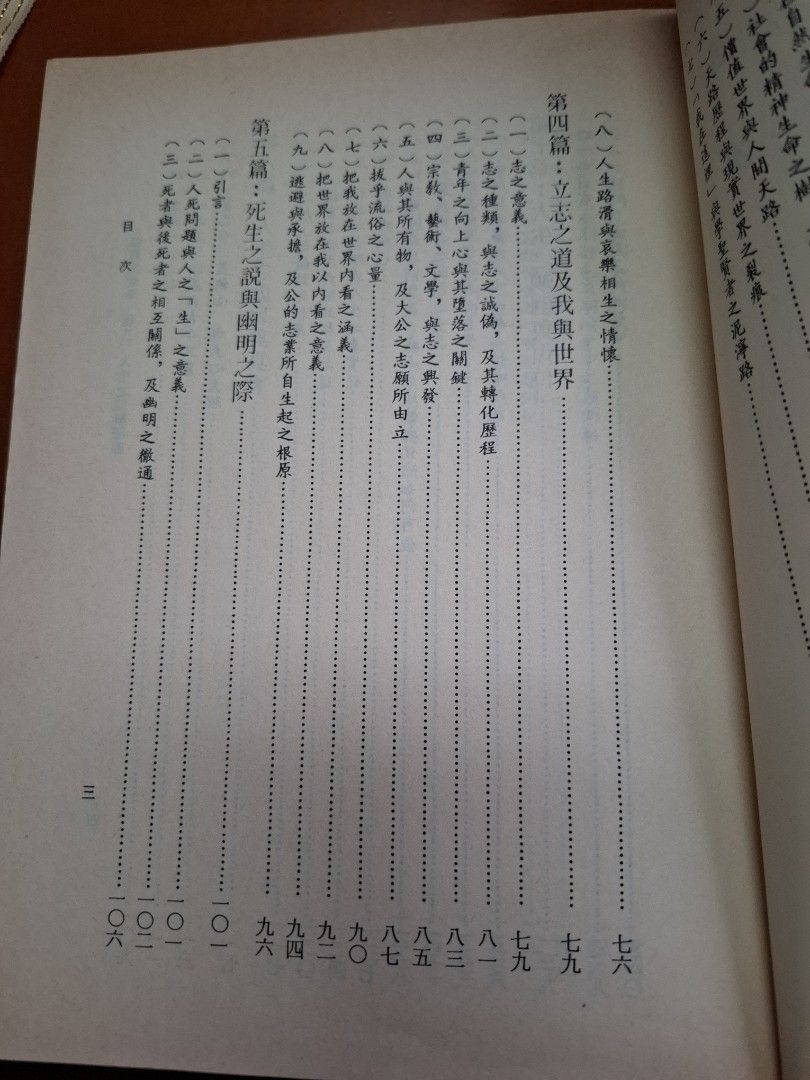 社會的精神生命之樹
五）價值世界與人間天路
（六）天路歷程與現實世界之裂痕
與學聖賢者之泥濘路
（八）人生路滑與哀樂相生之情懷……七六
第四篇：立志之道及我與世界……七九
（一）志之意義……七九
（二）志之種類，與志之誠偽，及其轉化歷程……八一
（三）青年之向上心與其墮落之關鍵……八三
（四）宗教、藝術、文學，與志之興發……八五
（五）人與其所有物，及大公之志願所由立……八七
（六）拔乎流俗之心量……九〇
（七）把我放在世界內看之涵義……九二
（八）把世界放在我以內看之意義……九四
（九）逃避與承擔，及公的志業所自生起之根原……九六
第五篇：死生之說與幽明之際……一〇一
（一）引言……一〇一
（二）人死問題與人之「生」之意義……一〇二
（三）死者與後死者之相互關係，及幽明之徹通……一〇六
目次
三